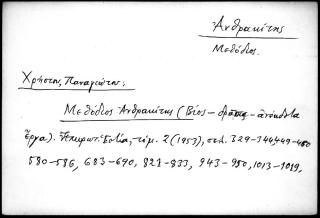 Ἀνθρακίτης
Μεθόδιος.
Χρήστου, Παναγιώτης:
Μεθόδιος Ἀνθρακίτης (Βίος - δρᾶσις - ἀνέκδοτα
ἔργα). Ἠπειρωτ. Ἑστία, τόμ. 2 (1953), σελ. 329-344, 449-460
580-586, 683-690, 821-833, 943-950, 1013-1019,